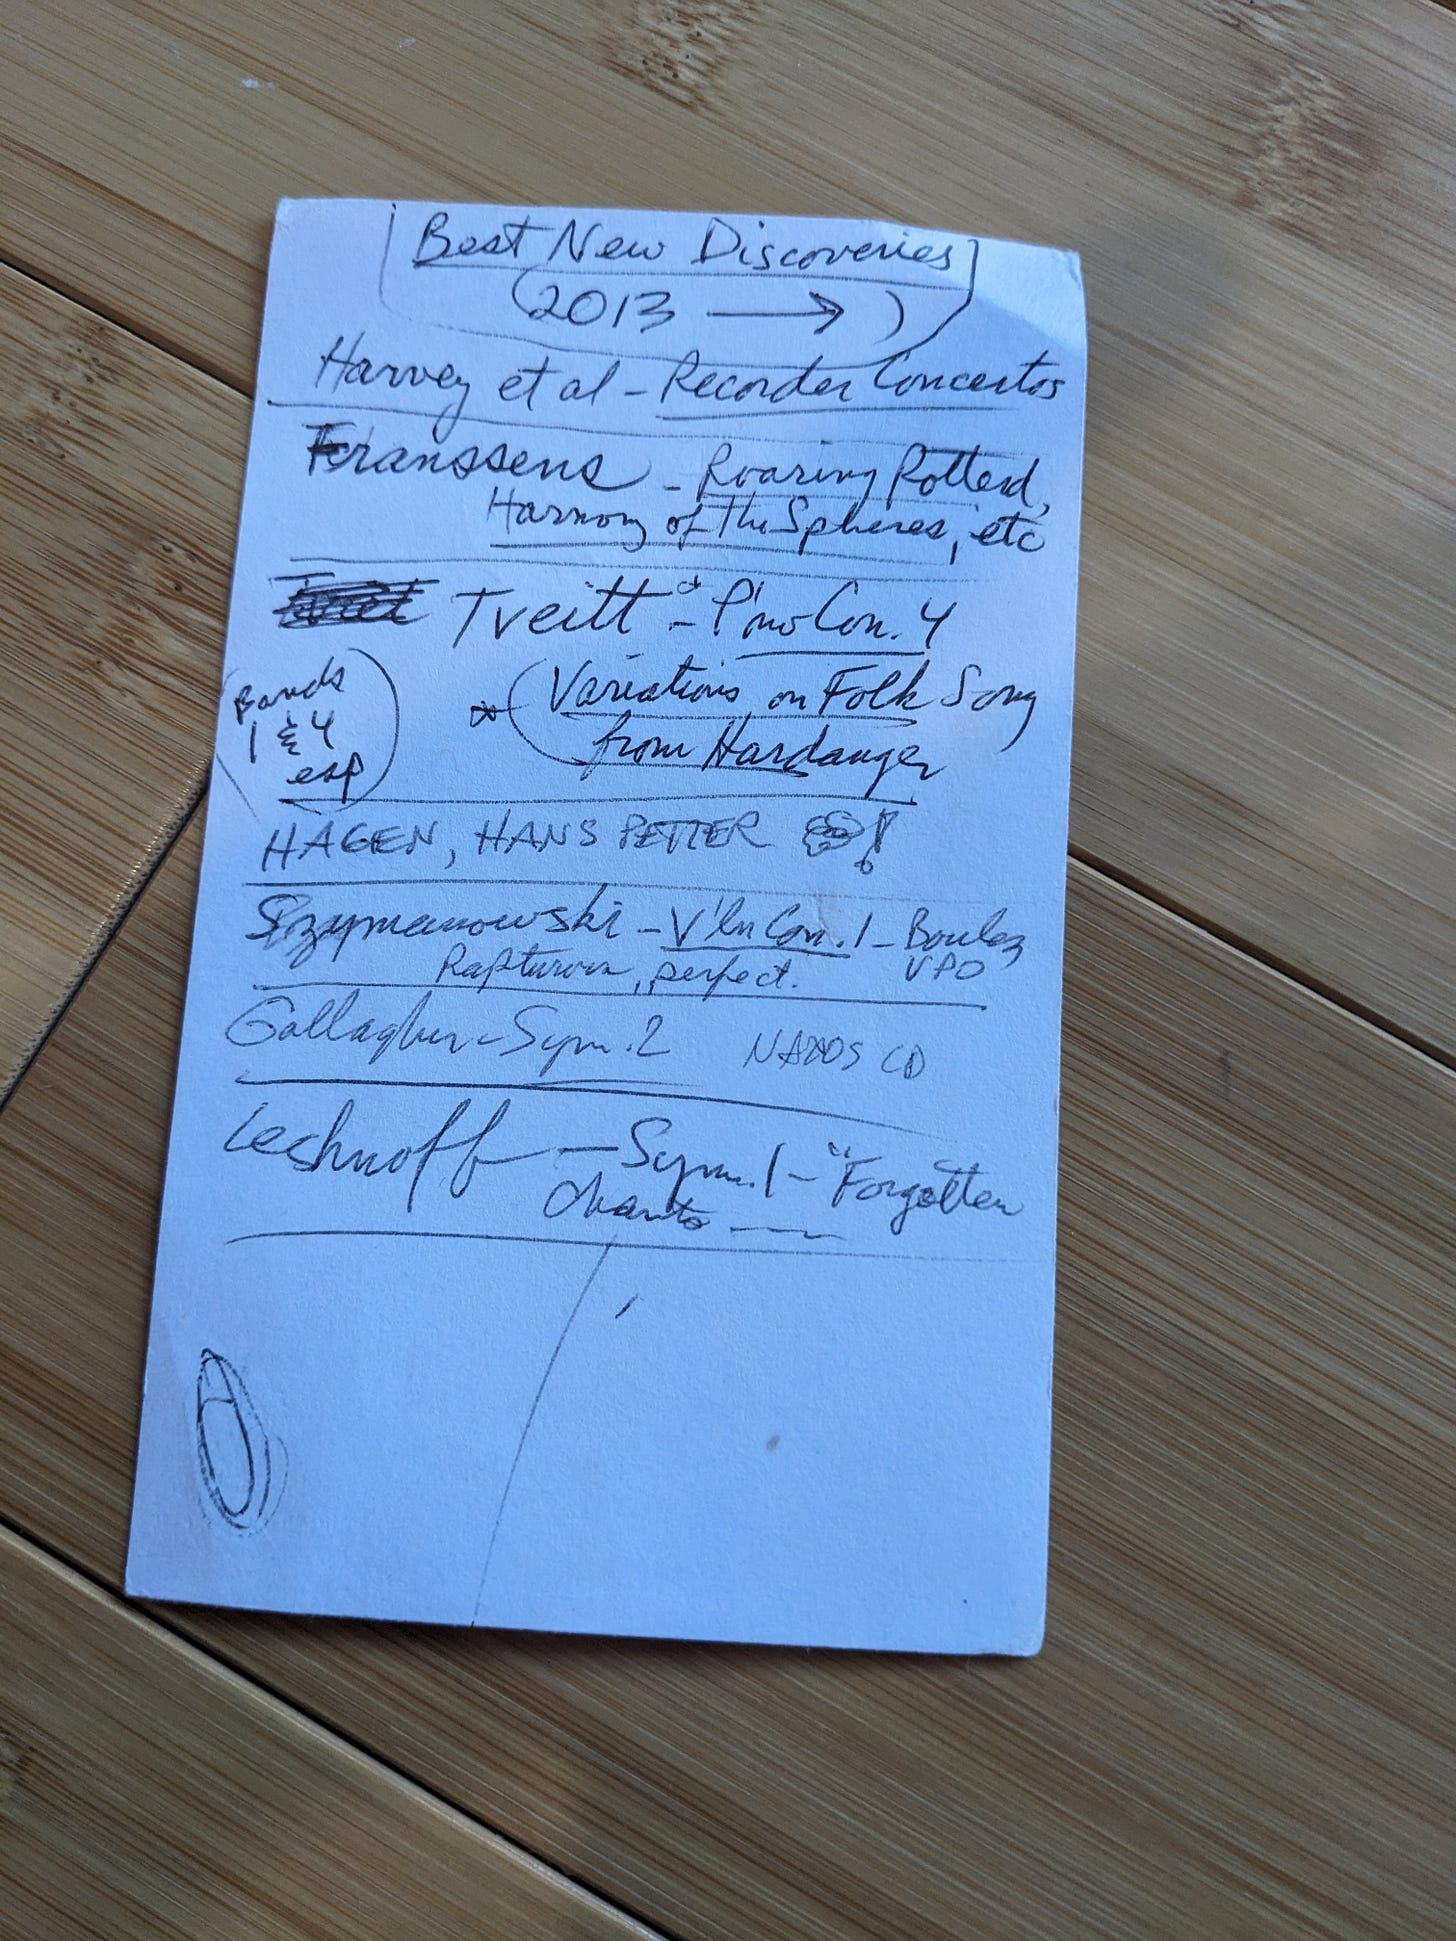 Best New Discoveries
(2013 → )
Harvey et al - Recorder Concertos
Franssens - Roaring Rotterd,
Harmony of the Spheres, etc
Tveitt - P'no Con. 4
(Variations on Folk Song
from Hardanger
(Bands
1 & 4
esp)
HAGEN, HANS PETTER !
Szymanowski - V'ln Con. 1 - Boulez
Rapturous, perfect. VPO
Gallagher - Sym. 2 NAXOS CD
Leshnoff - Sym. 1 - "Forgotten
Chants